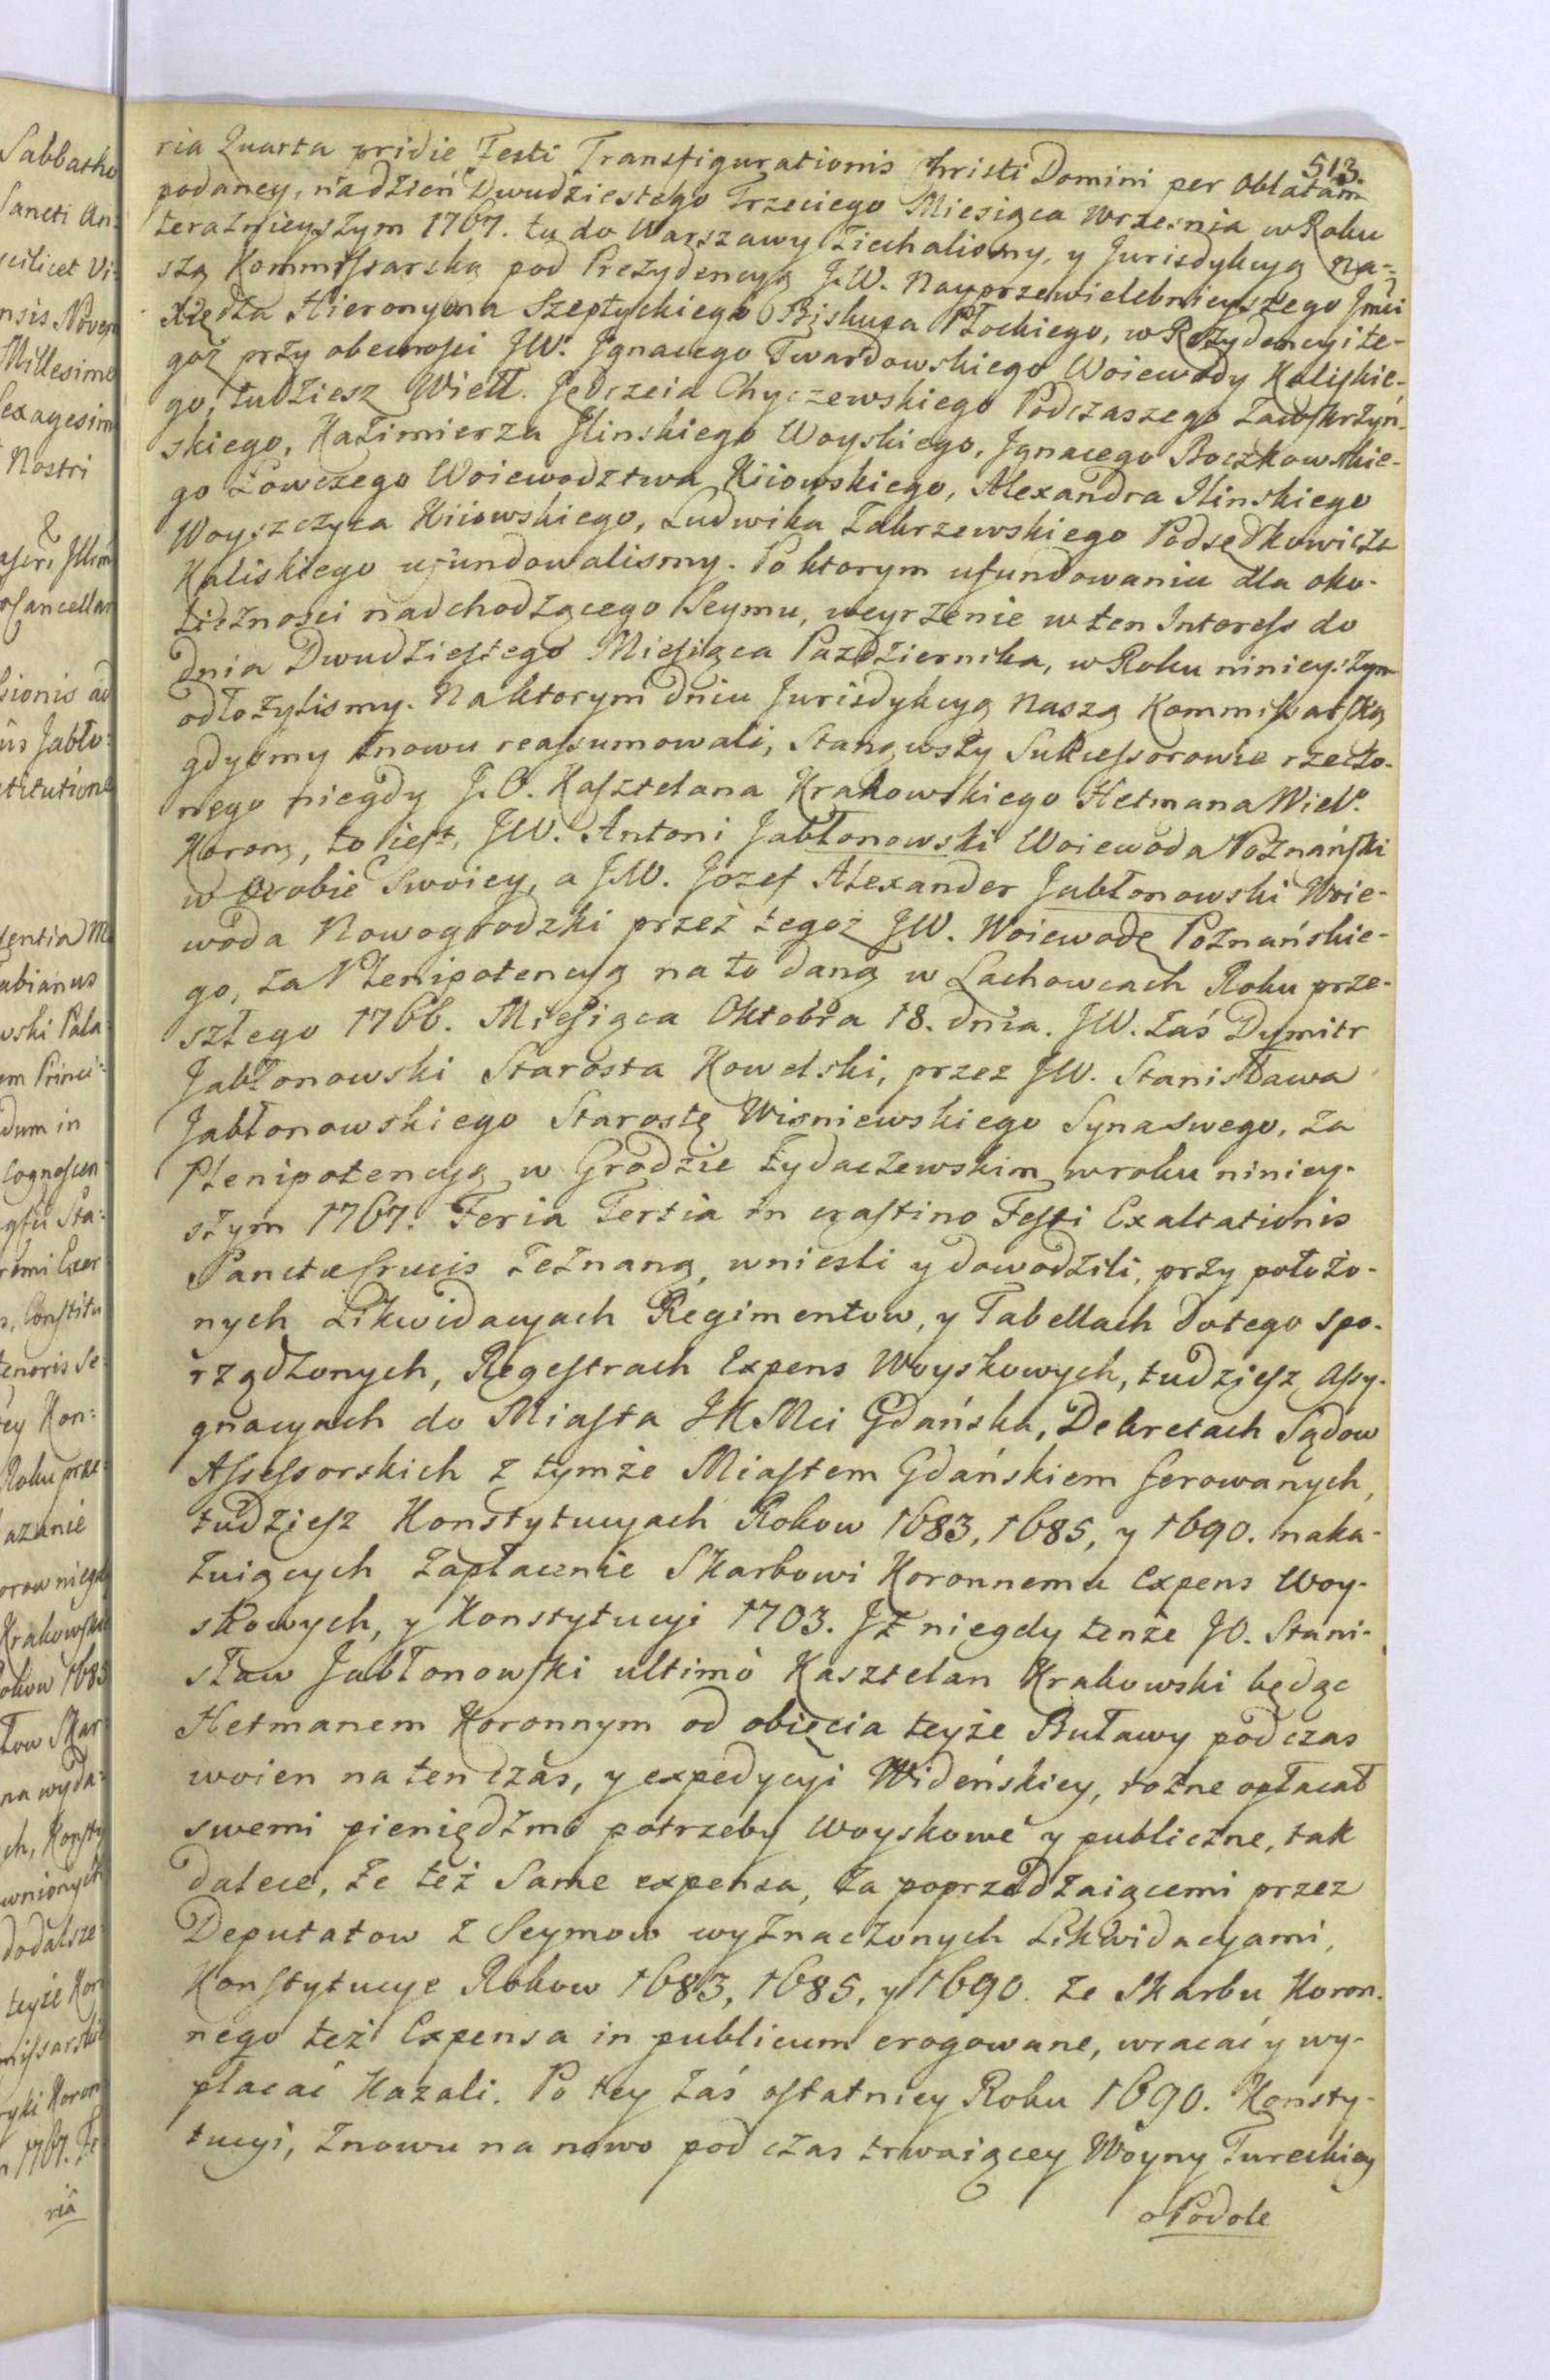 513.
ria Quarta pridie Festi Transfigurationis Christi Domini per Oblatam
podaney, na dzień Dwudziestego Trzeciego Miesiąca Września w Roku
teraznieyszym 1767. tu do Warszawy ziechalismy, y Jurisdykcyą Na-
szą Kommissarską pod Prezydencyą J.W. Nayprzewielebnieyszego Jmci
Xiędza Hieronyma Szeptyckiego Biskupa Płockiego, w Rezydencyi te-
goz przy obecnosci JW. Jgnacego Twardowskiego Woiewody Kaliskie-
go, tudziesz Wiell. Jędrzeia Chyczewskiego Podczaszego Zawskrzyń-
skiego, Kazimierza Jlinskiego Woyskiego, Jgnacego Boczkowskie-
go Łowczego Woiewodztwa Kiiowskiego, Alexandra Jlinskiego
Woyszczyca Kiiowskiego, Ludwika Zakrzewskiego Podsędkowicza
Kaliskiego ufundowalismy. Po ktorym ufundowaniu dla oko-
licznosci nadchodzącego Seymu, weyrzenie w ten Interess do
dnia Dwudziestego Miesiąca Pazdziernika, w Roku ninieyszym
odłozylismy. Na ktorym dniu Jurisdykcyą Naszą Kommissarską
gdysmy znowu reassumowali, Stanąwszy Sukcessorowie rzeczo-
nego niegdy J.O. Kasztelana Krakowskiego Hetmana Wiel.
Koron, to iest, JW. Antoni Jabłonowski Woiewoda Poznański
w Osobie Swoiey, a J.W. Jozef Alexander Jabłonowski Woie-
woda Nowogrodzki przez tegoż JW. Woiewodę Poznańskie-
go, za Plenipotencyą na to daną w Lachowcach Roku prze-
szłego 1766. Miesiąca Oktobra 18. dnia. JW. zaś Dymitr
Jabłonowski Starosta Kowelski, przez JW. Stanisława
Jabłonowskiego Starostę Wisniewskiego Syna swego, za
Plenipotencyą w Grodzie Zydaczewskim w roku niniey-
szym 1767. Feria Tertia in crastino Festi Exaltationis
Sanctæ Crucis zeznaną, wniesli y dowodzili, przy położo-
nych Likwidacyach Regimentow, y Tabellach do tego spo-
rządzonych, Regestrach Expens Woyskowych, tudziesz Assy-
gnacyach do Miasta JKMci Gdańska, Dekretach Sądow
Assessorskich z tymże Miastem Gdańskiem ferowanych,
tudziesz Konstytucyach Rokow 1683, 1685, y 1690. naka-
zuiących Zapłacenie Skarbowi Koronnemu Expens Woy-
skowych, y Konstytucyi 1703. Jż niegdy tenże JO. Stani-
sław Jabłonowski ultimò Kasztelan Krakowski będąc
Hetmanem Koronnym od obięcia teyże Buławy podczas
woien na ten czas, y expedycyi Wideńskiey, rożne opłacał
swemi pieniędzmi potrzeby Woyskowe y publiczne, tak
dalece, że też Same expensa, za poprzedzaiącemi przez
Deputatow z Seymow wyznaczonych Likwidacyami,
Konstytucye Rokow 1683, 1685, y 1690. ze Skarbu Koron-
nego też Expensa in publicum erogowane, wracać y wy-
płacać Kazali. Po tey zaś ostatniey Roku 1690. Konsty-
tucyi, znowu na nowo pod czas trwaiącey Woyny Tureckiey
o Podole